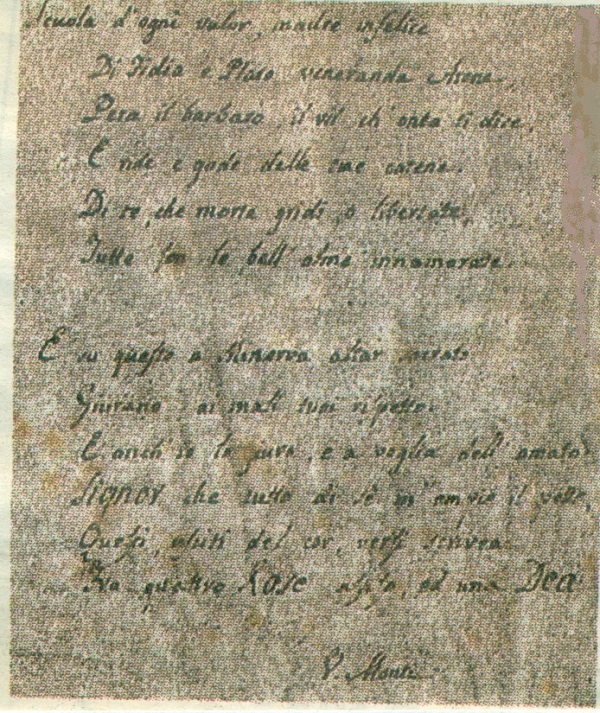 Scuola d'ogni valor, madre infelice
Di Fidia e Plato veneranda Atene,
Pera il barbaro, il vil ch'onta ti dice,
E ride e gode delle tue catene.
Di te, che morte gridi, o libertate,
Tutte son le bell'alme innamorate.
E su questo a Minerva altar sacrato
Giurano ai mali tuoi rispetto.
E anch'io lo juro, e a voglia dell'amato
Signor che tutto di sè m'empie il petto,
Questi, usciti del cor, versi scrivea
Fra quattro Rose assiso, ed una Dea
V. Monti